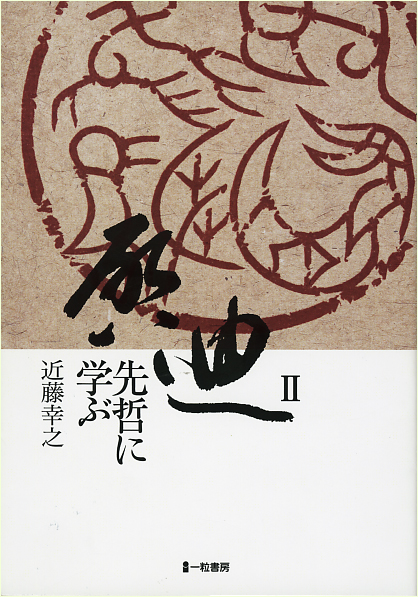 啓迪
II
先哲に
学ぶ
近藤幸之
一粒書房